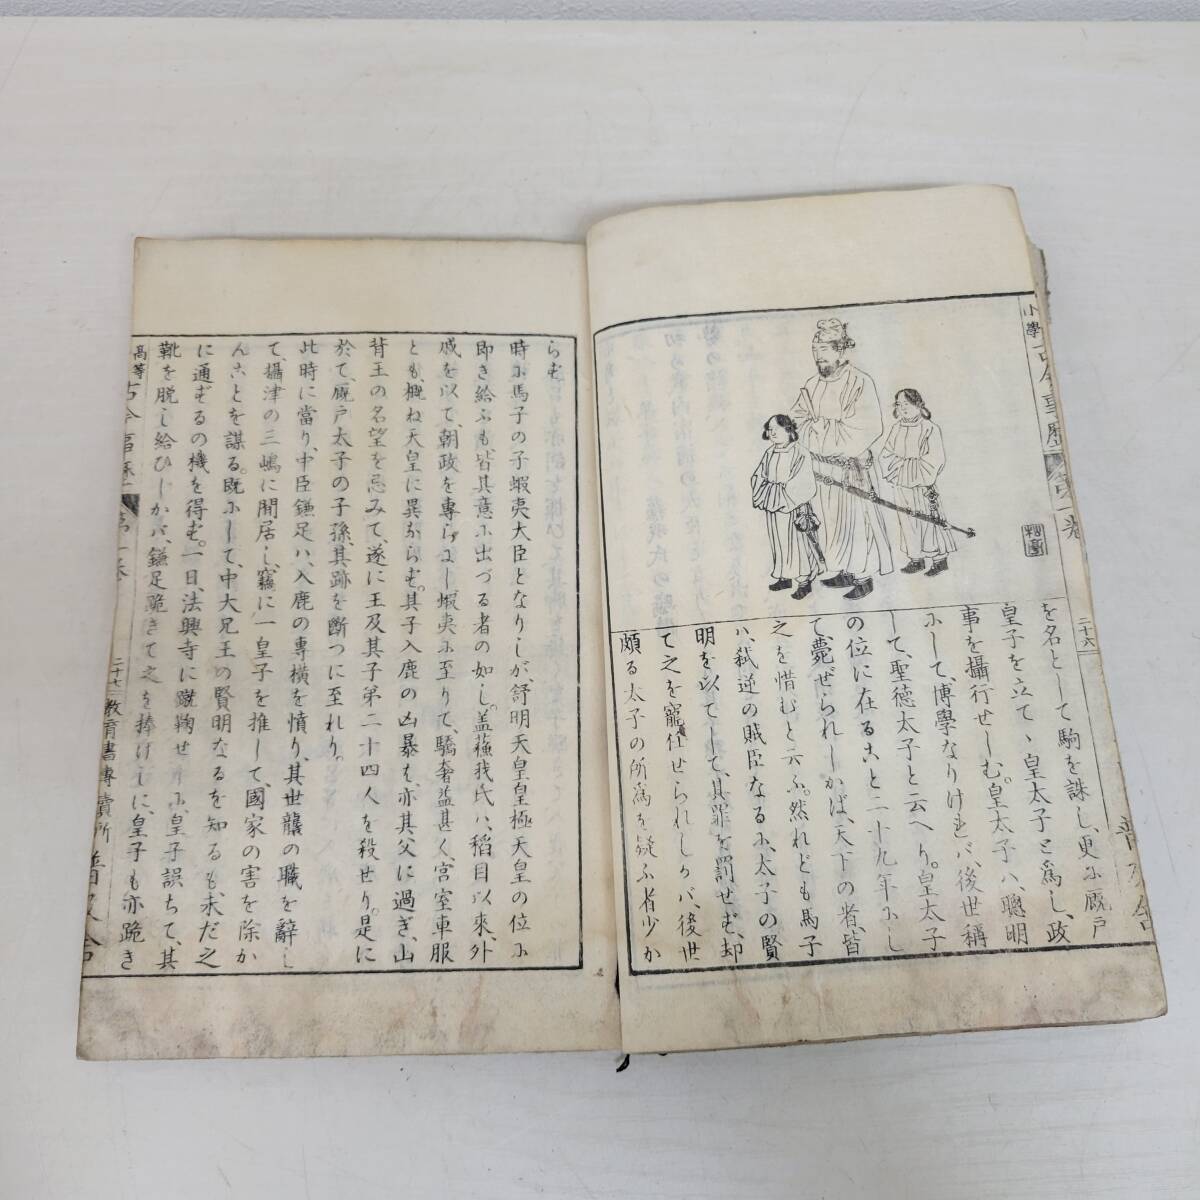 小學
二十六
を名として駒を誅し、更に厩戸
皇子を立て、皇太子と爲し、政
事を攝行せしむ。皇太子ハ、聰明
にして、博學なりけれバ、後世稱
して、聖德太子と云へり。皇太子
の位に在ること二十九年にし
て薨ぜられしかば、天下の者、皆
之を惜むと云ふ。然れども馬子
ハ、弑逆の賊臣なるに、太子の賢
明を以てして、其罪を罰せず、却
て之を寵任せられしかバ、後世
頗る太子の所爲を疑ふ者少か
らず。
時に馬子の子蝦夷大臣となりしが、舒明天皇皇極天皇の位に
即き給ふも、皆其意に出づる者の如し。蓋蘇我氏ハ、稻目以來、外
戚を以て、朝政を專らにし、蝦夷に至りて、驕奢益甚く、宮室車服
とも、概ね天皇に異ならず。其子入鹿の凶暴も、亦其父に過ぎ、山
背王の名望を忌みて、遂に王及其子弟二十四人を殺せり。是に
於て、厩戸太子の子孫、其跡を斷つに至れり。
此時に當り、中臣鎌足ハ、入鹿の專横を憤り、其世襲の職を辭し
て、攝津の三嶋に閒居し、竊に一皇子を推して、國家の害を除か
んことを謀る。既にして、中大兄王の賢明なるを知るも、未だ之
に通ずるの機を得ず。一日、法興寺に蹴鞠せしに、皇子誤ちて、其
靴を脱し給ひしかバ、鎌足跪きて之を捧げしに、皇子も亦跪き
高等
二十七
教育書專賣所
普及舎